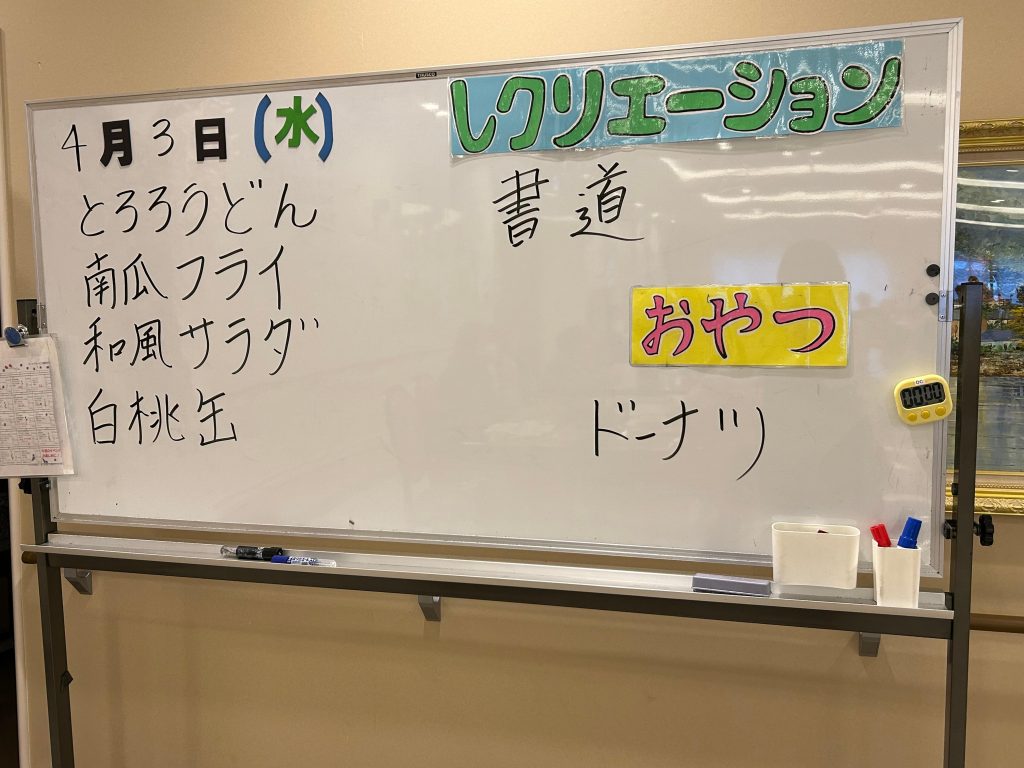 4月3日(水)
とろろうどん
南瓜フライ
和風サラダ
白桃缶
レクリエーション
書道
おやつ
ドーナツ
00:00